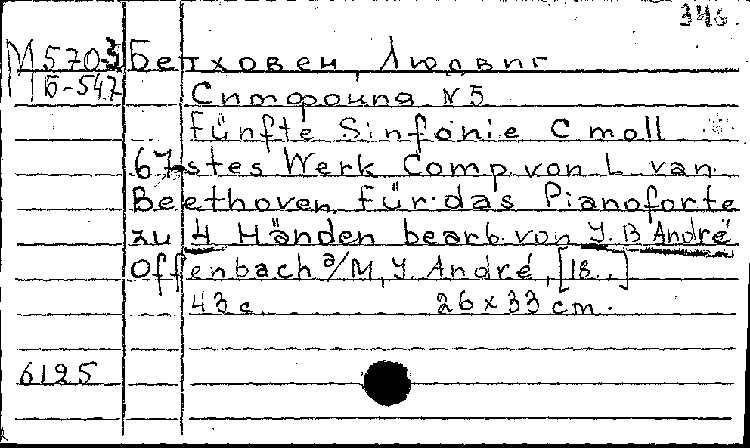 346.
М5703 Бетховен, Людвиг
Б-547
Симфония N5
Fünfte Sinfonie C moll
67-stes Werk Comp. von L. van
Beethoven für das Pianoforte
zu 4 Händen bearb. von J. B. André
Offenbach a/M, J. André, [18..]
43 с. 26 x 33 cm.
6125